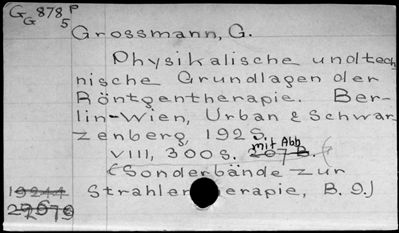 G 878 P
G 5
Grossmann, G.
Physikalische und tech
nische Grundlagen der
Röntgentherapie. Ber-
lin-Wien, Urban & Schwar
zenberg, 1925.
mit Abb
VIII, 300 S. 207 B.
(Sonderbände zur
19244 Strahlen erapie, B. 9.)